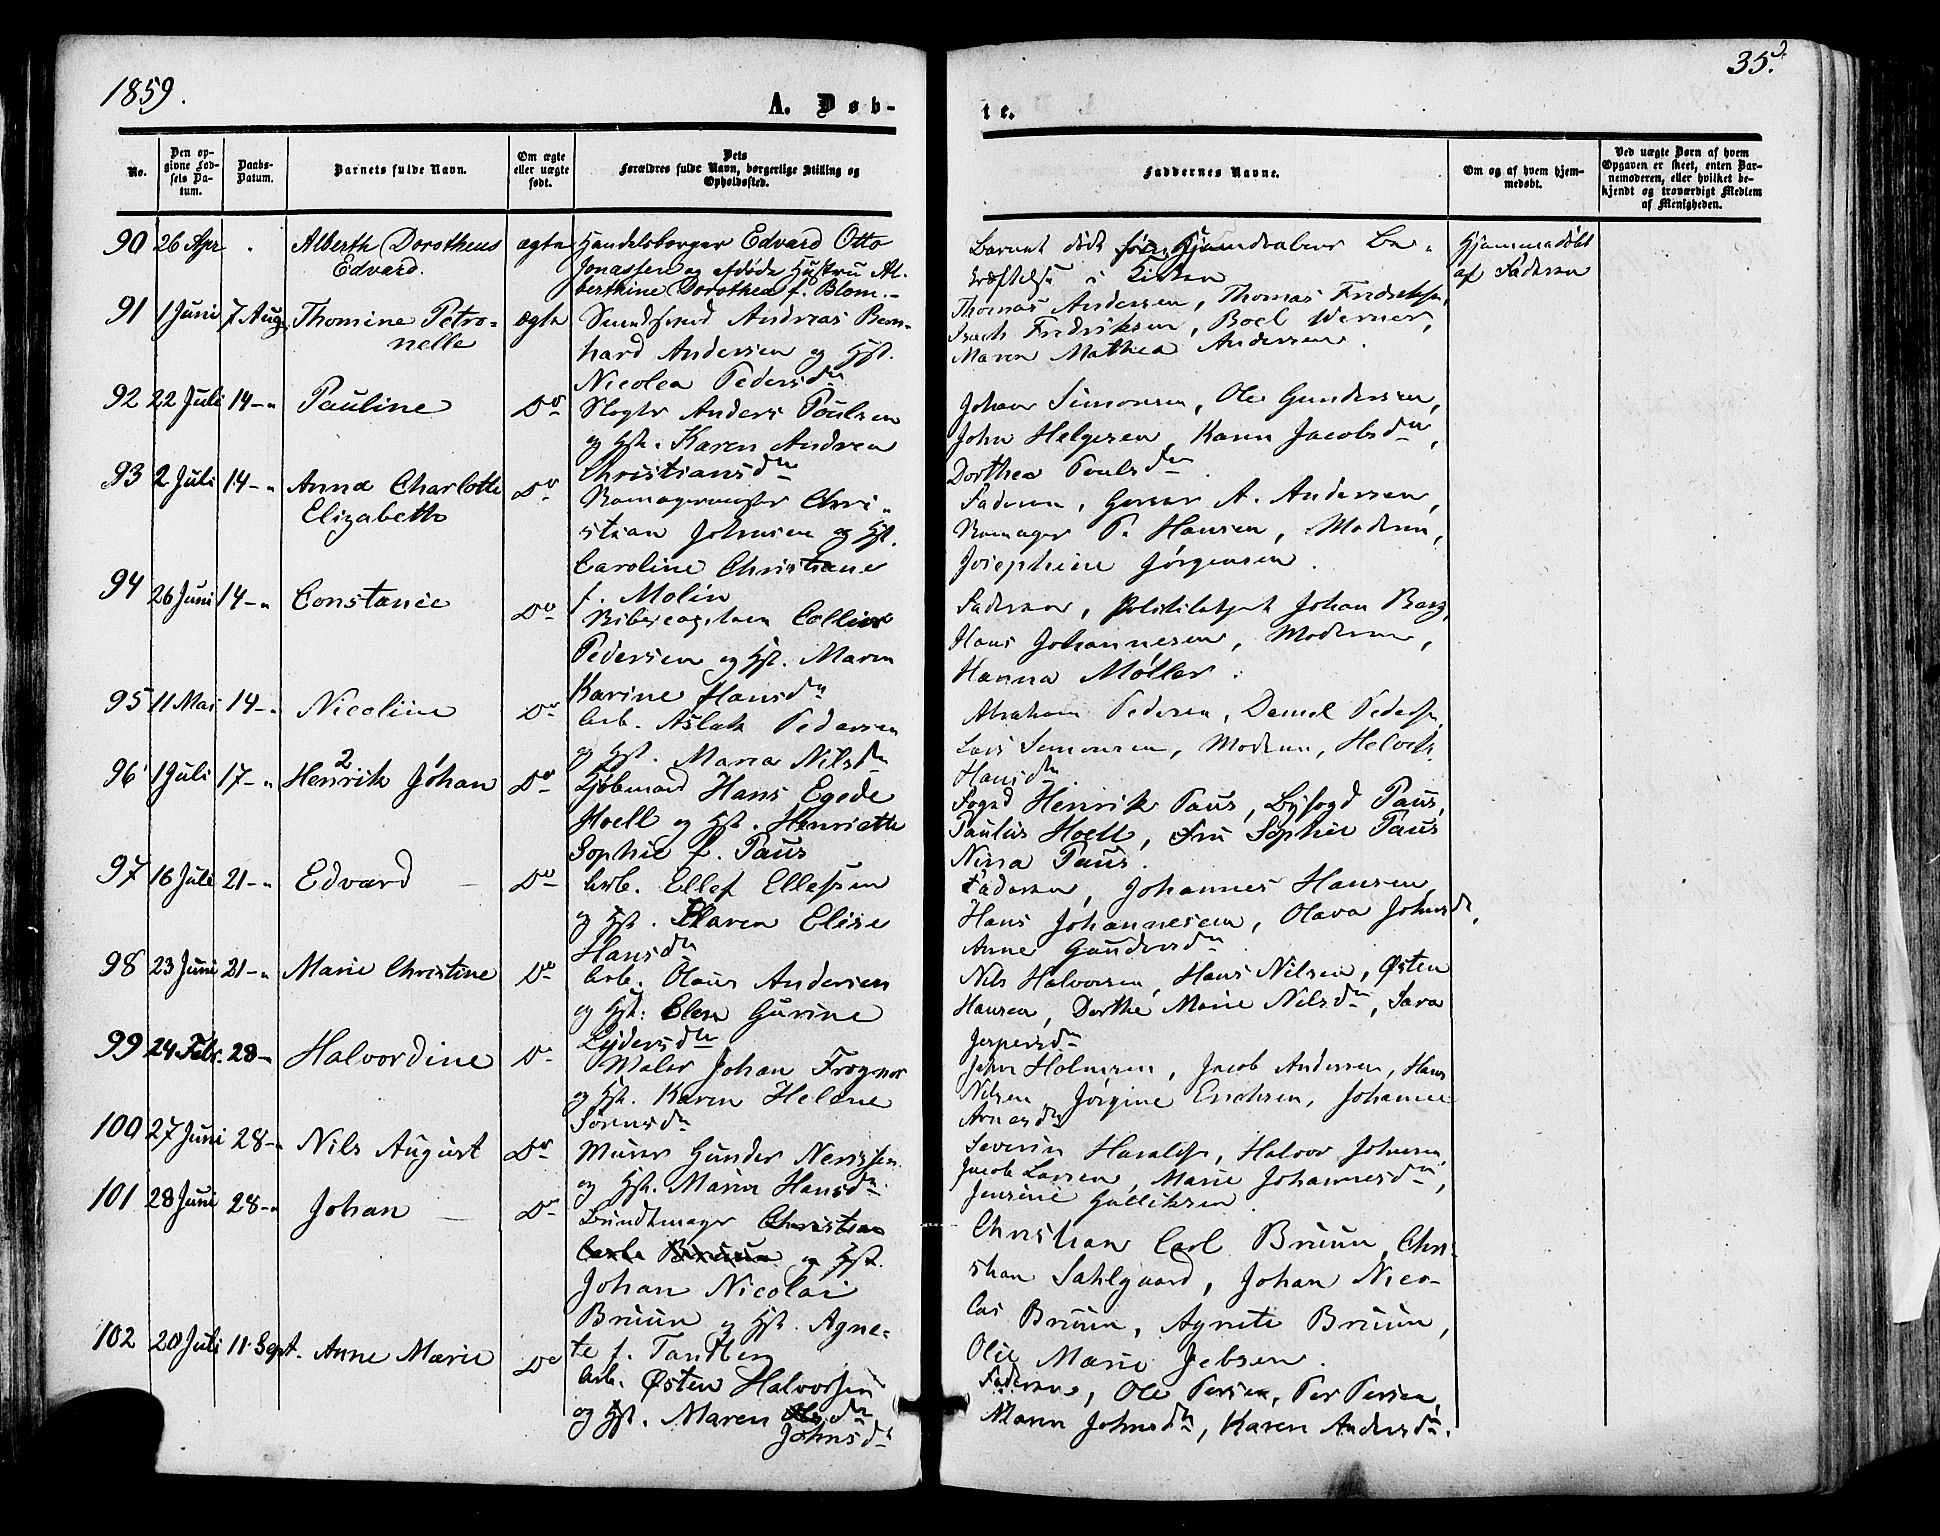 1859.
A. Døb-
te.
35.
No.
Den op-
givne Fød-
sels Da-
tum.
Daabs-
Datum.
Barnets fulde Navn.
Om ægte
eller uægte
født.
Dets
Forældres fulde Navn, borgerlige Stilling og
Opholdssted.
Faddernes Navne.
Om og af hvem hjem-
medøbt.
Ved uægte Børn af hvem
Opgaven er skeet, enten Bar-
nemoderen, eller hvilket be-
kjendt og troværdigt Medlem
af Menigheden.
90 26 Apr Alberth Dorotheus
Edvard.
ægte
Handelsborger Edvard Otto
Jonassen og afdøde Hustru Al-
berthine Dorothea f. Blom.
Barnet døde før Hjemdaabens Be-
kræftelse i Kirken
Hjemmedøbt
af Faderen
91 1 Juni 7 Aug. Thomine Petro-
nelle
ægte
Andreas Bern-
hard Andersen og Hst.
Nicolea Pedersdn
Thomas Andersen, Thomas Fredriksen,
Fredriksen, Boel Werner,
Maren Mathea Andersen.
92 22 Juli 14- Pauline
Do
Anders Poulsen
og Hst. Karen Andrea
Christiansdn
Johan Simonsen, Ole Gundersen,
John Helgesen, Karen Jacobsdn,
Dorthea Poulsdn
93 2 Juli 14- Anna Charlotte
Elizabeth
Do
Chri-
stian Johnsen og Hst.
Caroline Christiane
f. Molin
Faderen, A. Andersen,
P. Hansen, Moderen,
Josephine Jørgensen.
94 26 Juni 14- Constance
Do
Pedersen og Hst. Maren
Karine Hansdn
Faderen, Politibetjent Johan Berg,
Hans Johannesen, Moderen,
Hanna Møller.
95 11 Mai 14- Nicoline
Do
Arb. Aslak Pedersen
og Hst. Maren Nilsdn
Abraham Pedersen, Daniel Pedersen,
Lars Simonsen, Moderen,
Hansdn
96 1 Juli 17- Henrik Johan
2
Do
Kjøbmand Hans Egede
Hoell og Hst. Henriette
Sophie f. Paus
Fogd Henrik Paus, Byfogd Paus,
Paulus Hoell, Fru Sophie Paus
Nina Paus.
97 16 Juli 21- Edvard
Do
Arb. Ellef Ellefsen
og Hst. Maren Elise
Hansdn
Faderen, Johannes Hansen,
Hans Johannesen, Olava Johnsdn,
Anne Gundersdn
98 23 Juni 21- Marie Christine
Do
Arb. Olaus Andersen
og Hst. Elen Gurine
Lydersdn
Nils Halvorsen, Hans Nilsen, Østen
Hansen, Dorthe Marie Nilsdn, Sara
Jespersdn
99 24 Febr. 28- Halvordine
Do
Maler Johan Frogner
og Hst. Karen Helene
Sørensdn
Holmsen, Jacob Andersen, Hans
Nilsen, Jørgine Erichsen, Johanne
Arnesdn
100 27 Juni 28- Nils August
Do
Murer Gunder Nerissen
og Hst. Maren Hansdn
Severin Haraldsen, Halvor Johnsen,
Jacob Larsen, Marie Johannesdn,
Jensine Gulliksen
101 28 Juni 28- Johan
Do
Bundtmager Christian
Carl Bruun og Hst.
Johan Nicolai
Bruun og Hst. Agne-
te f. Tandberg
Christian Carl Bruun, Chri-
stian Sahlgaard, Johan Nico-
lai Bruun, Agnete Bruun,
Olie Marie Jebsen.
102 20 Juli 11. Sept. Anne Marie
Do
Arb. Østen Halvorsen
og Hst. Maren
Johnsdn
Faderen, Ole Persen, Per Persen,
Maren Johnsdn, Karen Andersdn.